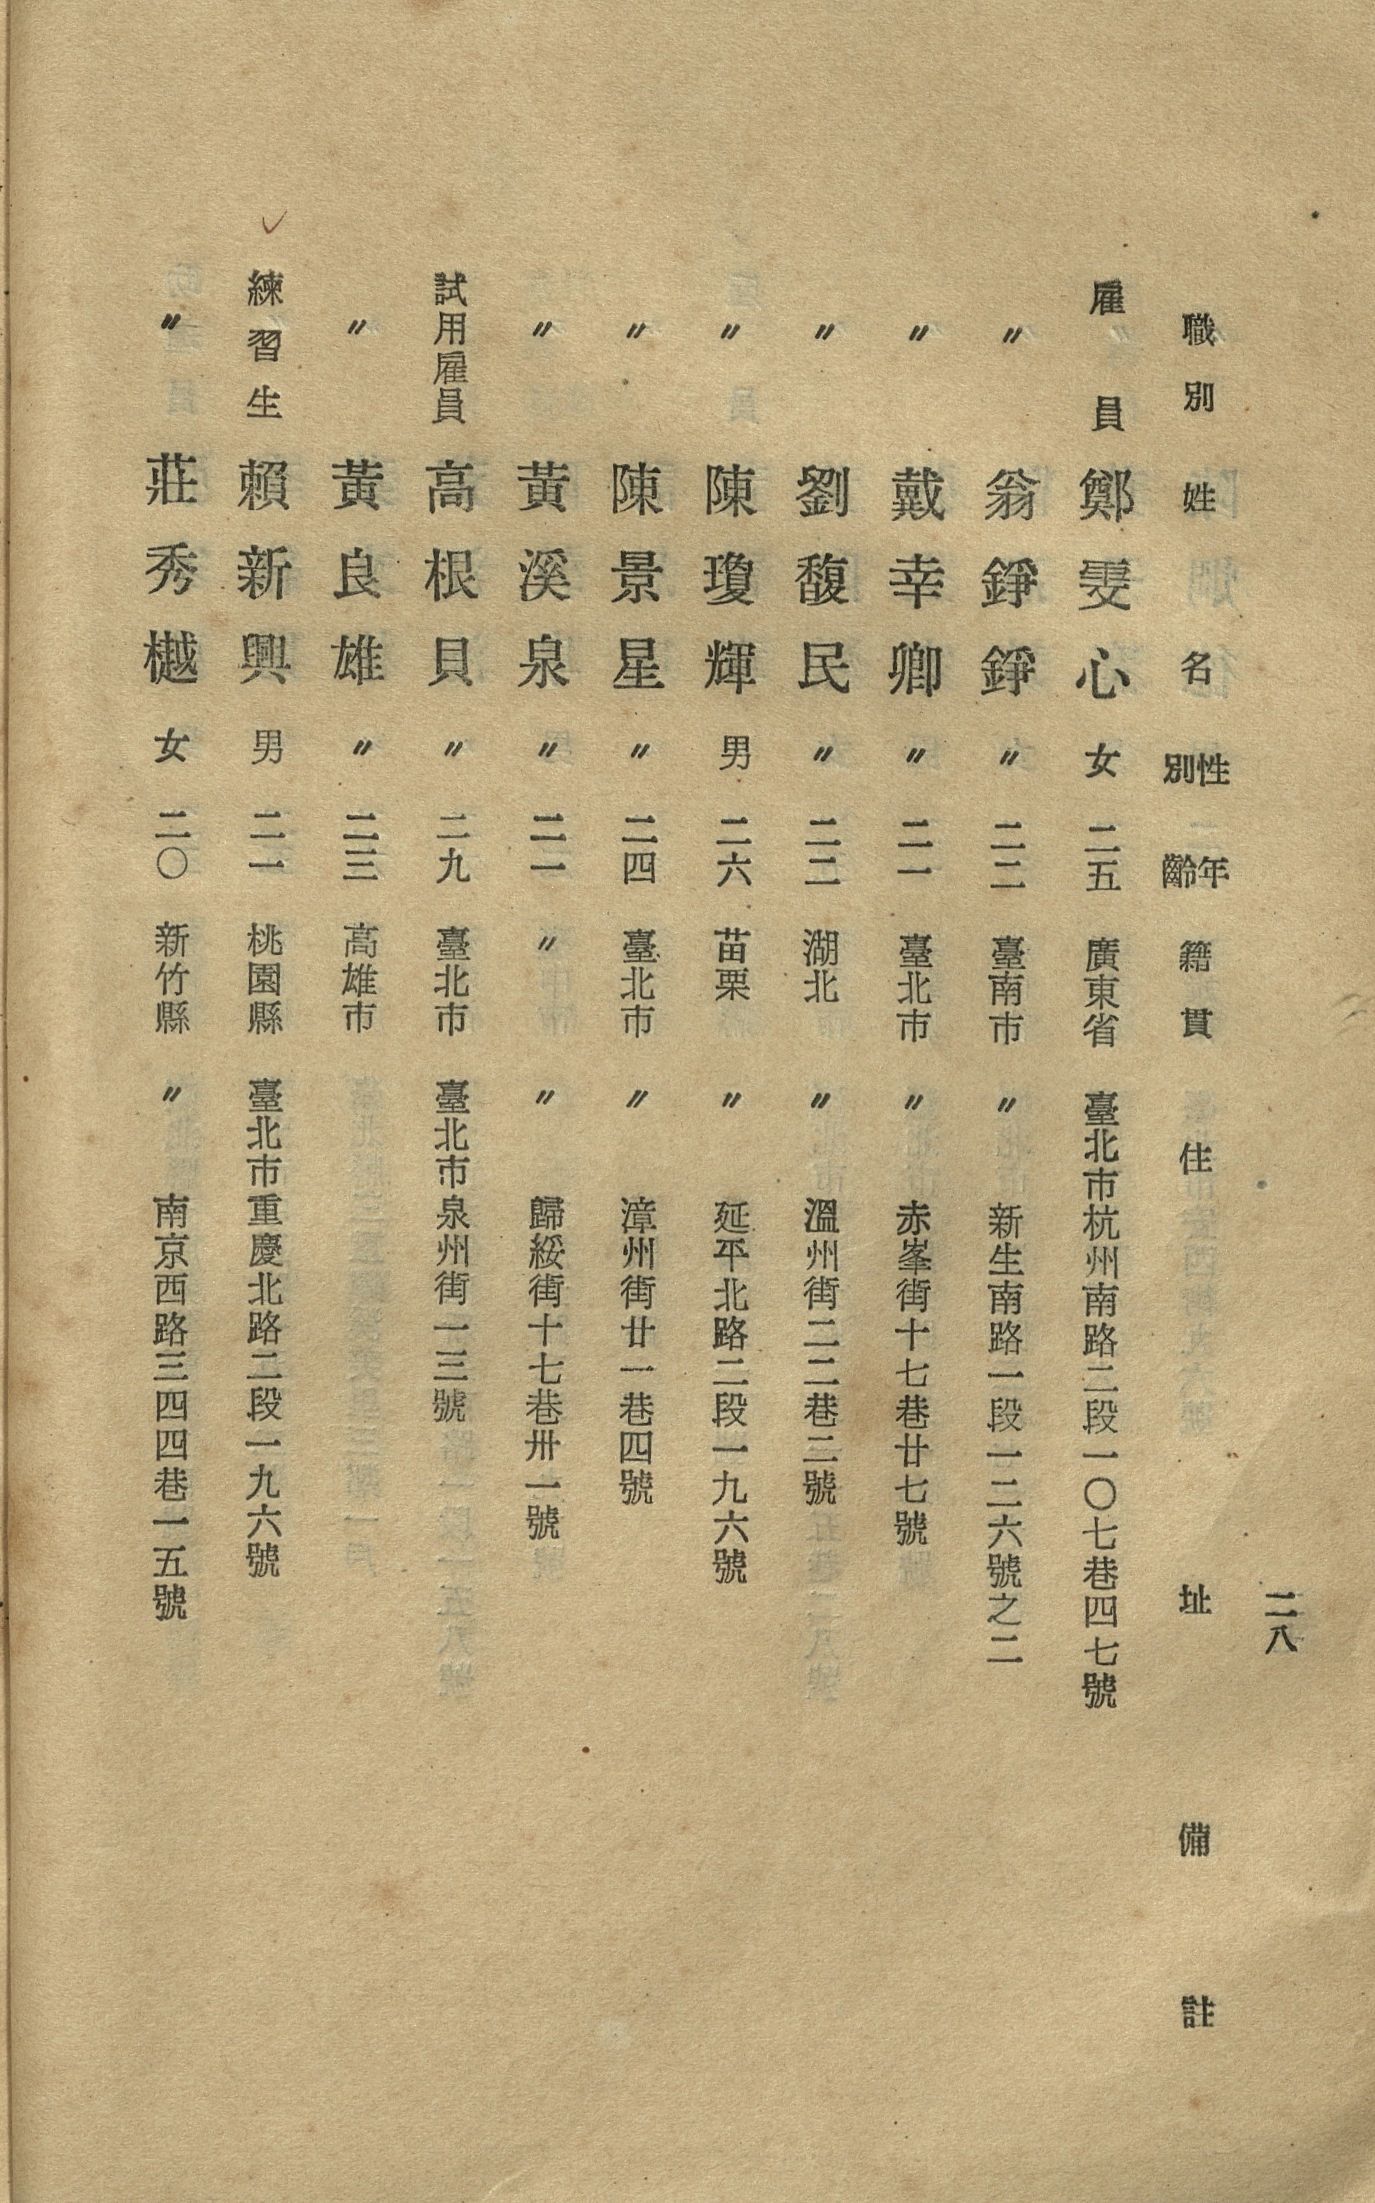 二八
職別 姓名 性別 年齡 籍貫 住址 備註
雇員 鄭雯心 女 二五 廣東省 臺北市杭州南路二段一〇七巷四七號
〃 翁錚錚 〃 二二 臺南市 〃 新生南路一段一二六號之二
〃 戴幸卿 〃 二一 臺北市 〃 赤峯街十七巷廿七號
〃 劉馥民 〃 二二 湖北 〃 溫州街二二巷二號
〃 陳瓊輝 男 二六 苗栗 〃 延平北路二段一九六號
〃 陳景星 〃 二四 臺北市 〃 漳州街廿一巷四號
〃 黃溪泉 〃 二一 〃 〃 歸綏街十七巷卅一號
試用雇員 高根貝 〃 二九 臺北市 臺北市泉州街一三號
〃 黃良雄 〃 二三 高雄市
練習生 賴新興 男 二一 桃園縣 臺北市重慶北路二段一九六號
〃 莊秀樾 女 二〇 新竹縣 〃 南京西路三四四巷一五號